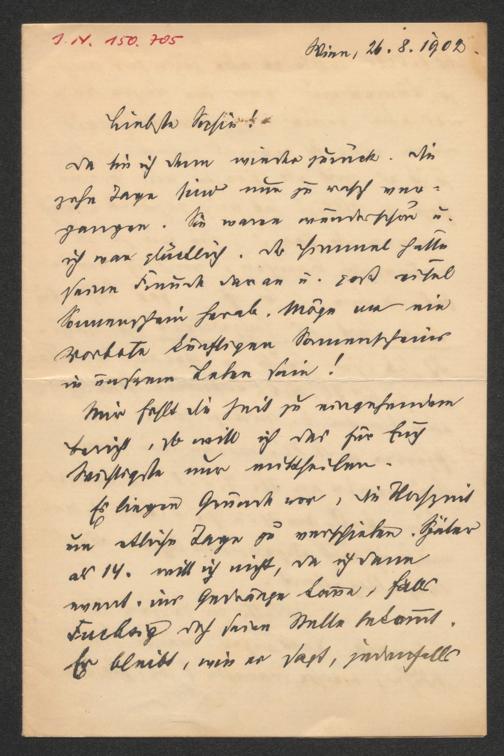 J.N. 150.705
Wien, 26.8.1902.
Liebste Sofie!
Da bin ich denn wieder zurück. Die
zehn Tage sind nur zu rasch ver-
gangen. Sie waren wunderschön u.
ich war glücklich. Der Himmel hatte
seine Freude daran u. goß eitel
Sonnenschein herab. Möge er ein
Vorbote künftigen Sonnenscheins
in unserem Leben sein!
Mir fehlt die Zeit zu eingehendem
Bericht, so will ich das für Euch
Wichtigste nur mittheilen.
Es liegen Gründe vor, die Hochzeit
um etliche Tage zu verschieben. Später
als 14. will ich nicht, da ich dann
event. ins Gedränge käme, falls
doch seine Stelle bekommt.
Er bleibt, wie er sagt, jedenfalls